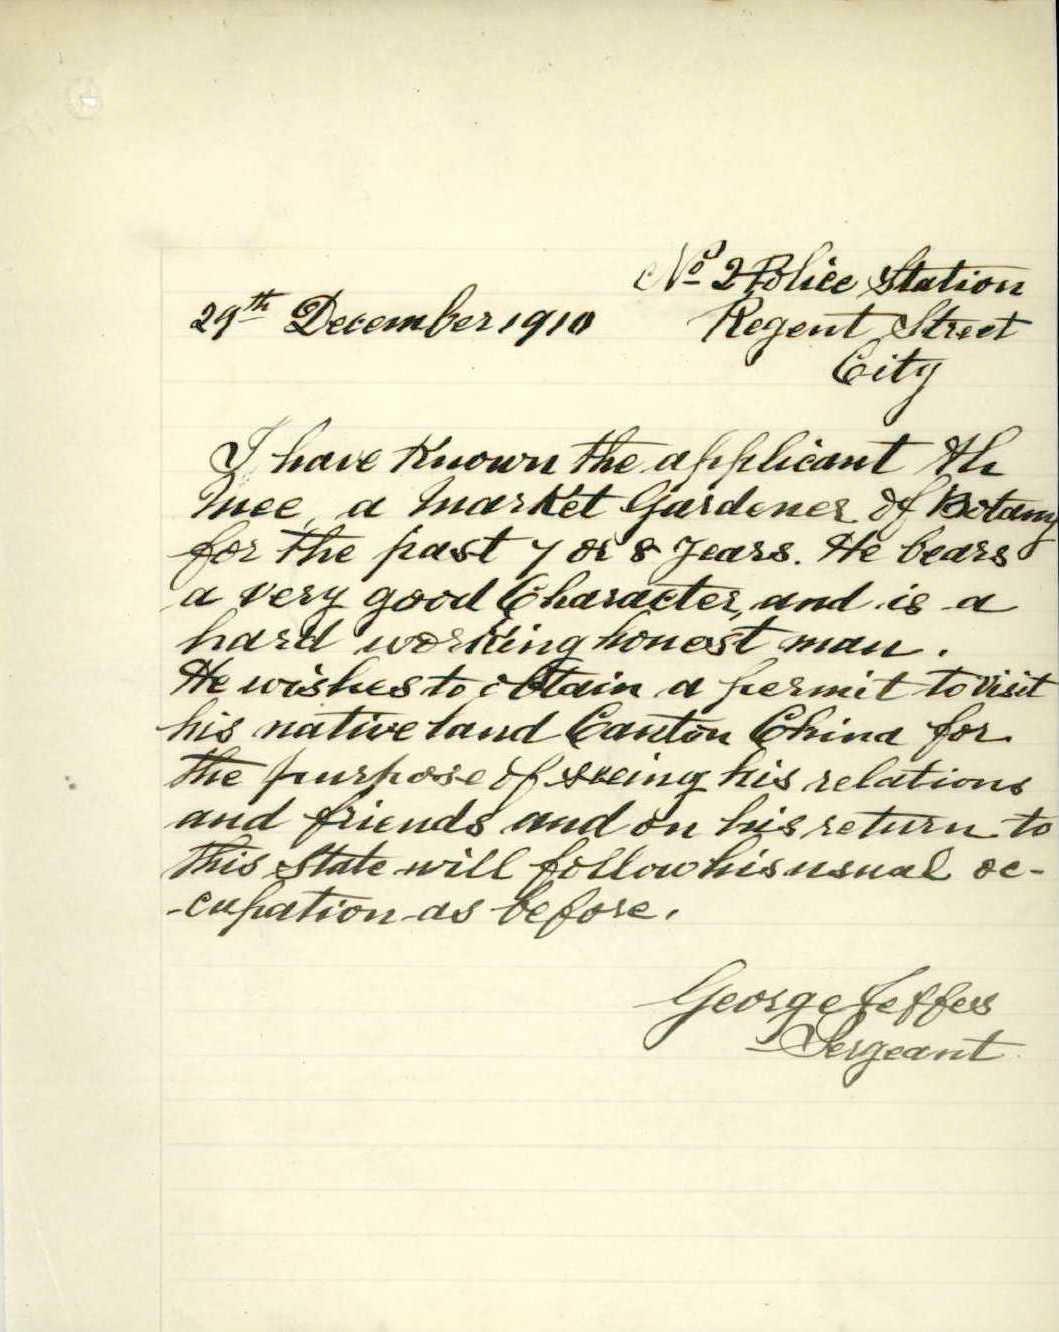 No 2 Police Station
29th December 1910 Regent Street
City
I have Known the applicant Ah
Mee, a Market Gardener of Botany
for the past 7 or 8 years. He bears
a very good Character, and is a
hard working honest man.
He wishes to obtain a permit to visit
his native land Canton China for
the purpose of seeing his relations
and friends and on his return to
this State will follow his usual oc-
-cupation as before.
George Jeffers
Sergeant